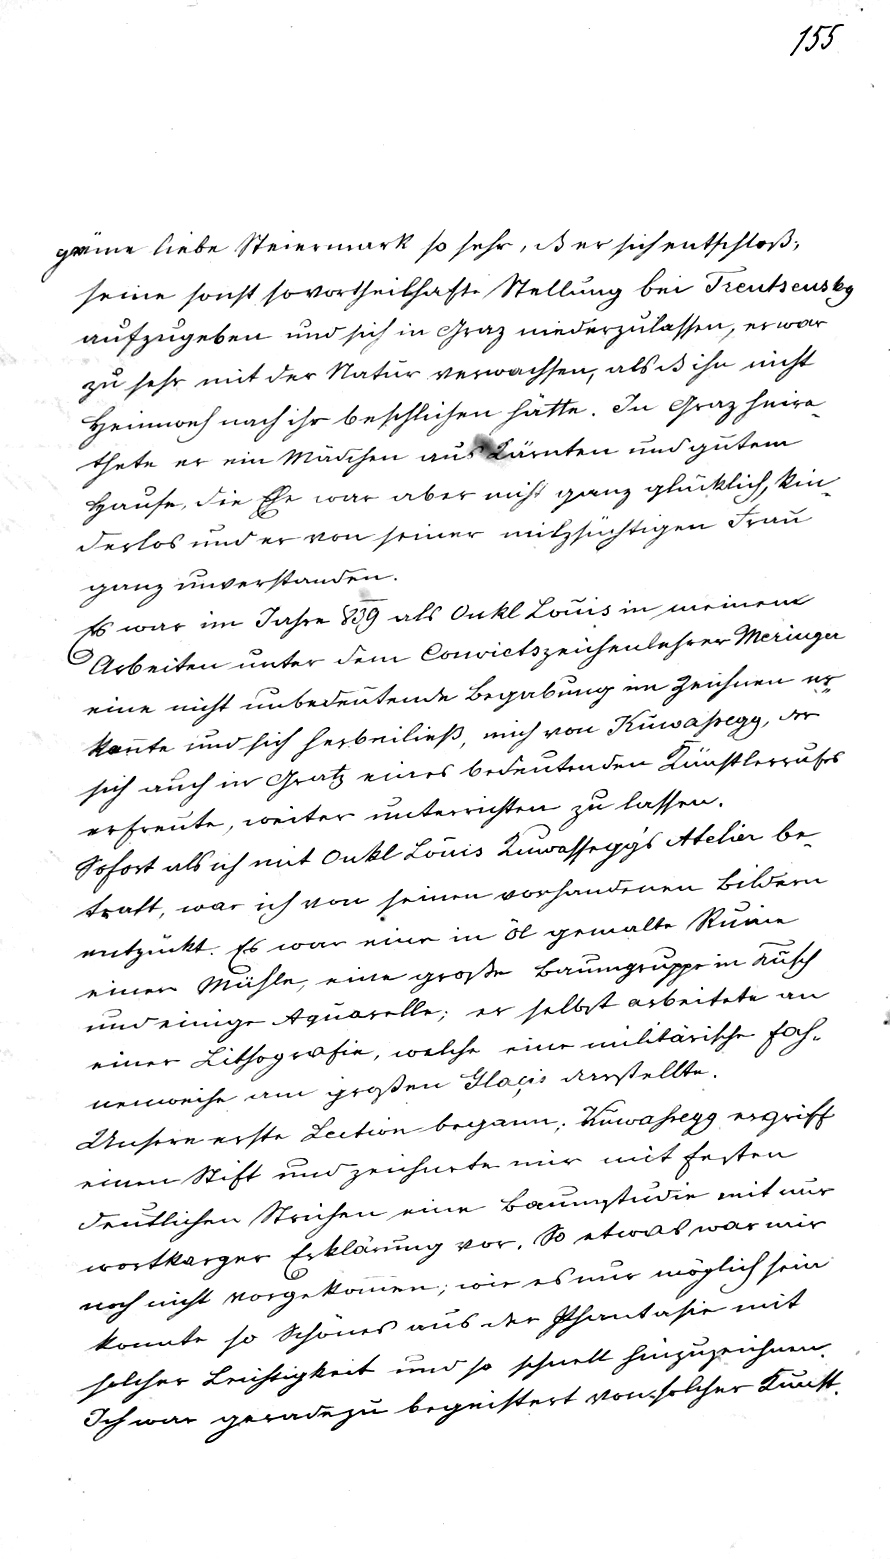 155
grüne liebe Steiermark so sehr, dß er sich entschloß,
seine sonst so vortheilhafte Stellung bei Trentsensky
aufzugeben und sich in Graz niederzulassen, er war
zu sehr mit der Natur verwachsen, als dß ihn nicht
Heimweh nach ihr beschlichen hätte. In Graz heira-
thete er ein Mädchen aus Kärnten und gutem
Hause, die Ehe war aber nicht ganz glücklich, kin-
derlos und er von seiner milzsüchtigen Frau
ganz unverstanden.
Es war im Jahre 839 als Onkl Louis in meinem
Arbeiten unter dem Convictszeichenlehrer Meringer
eine nicht unbedeutende Begabung im Zeichnen er-
kan̅te und sich herbeiließ, mich von Kuwaßegg, der
sich auch in Gratz eines bedeutenden Künstlerrufes
erfreute, weiter unterrichten zu lassen.
Sofort als ich mit Onkl Louis Kuwassegg's Atelier be-
tratt, war ich von seinen vorhandenen Bildern
entzückt. Es war eine in Öl gemalte Ruine
einer Mühle, eine große Baumgruppe in Tusch
und einige Aquarelle; er selbst arbeitete an
einer Lithografie, welche eine militärische Fah-
nenweihe am großen Glaçis darstellte.
Unsere erste Lection begann; Kuwaßegg ergriff
einen Stift und zeichnete mir mit festen
deutlichen Strichen eine Baumstudie mit nur
wortkarger Erklärung vor. So etwas war mir
noch nicht vorgekom̅en; wie es nur möglich sein
konnte so Schönes aus der Phantasie mit
solcher Leichtigkeit und so schnell hinzuzeichnen.
Ich war geradezu begeistert von solcher Kunst.